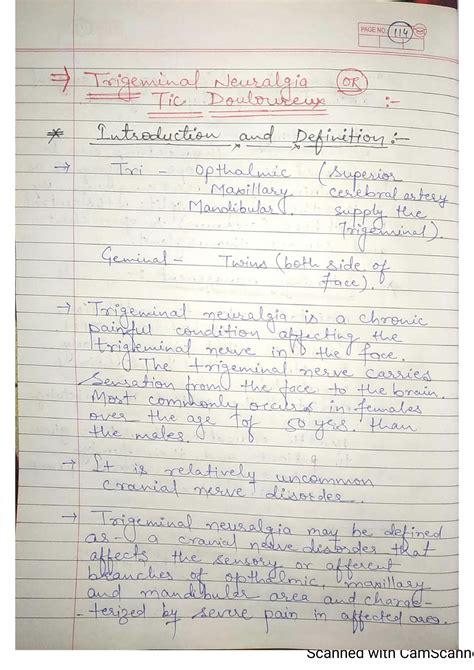 PAGE NO. 114
⇒ Trigeminal Neuralgia OR
Tic Douloureux :-
* Introduction and Definition:-
→ Tri - Opthalmic (Superior
Maxillary cerebral artery
Mandibular. supply the
Trigeminal).
Geminal - Twins (both side of
face).
→ Trigeminal neuralgia is a chronic
painful condition affecting the
trigeminal nerve in the face.
The trigeminal nerve carries
sensation from the face to the brain.
Most commonly occurs in females
over the age of 50 yrs. than
the males.
→ It is relatively uncommon
cranial nerve disorder.
→ Trigeminal neuralgia may be defined
as - a cranial nerve disorder that
affects the sensory or afferent
branches of opthalmic, maxillary
and mandibular area and charac-
-terized by severe pain in affected area.
Scanned with CamScann